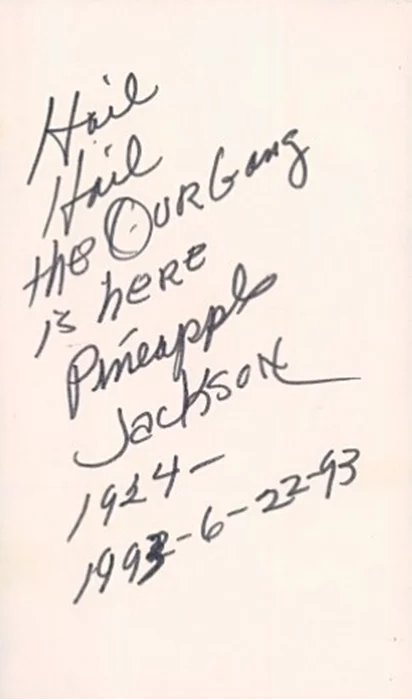 Hail
Hail
the OUR Gang
is here
Pineapple
Jackson
1924-
1993-6-22-93